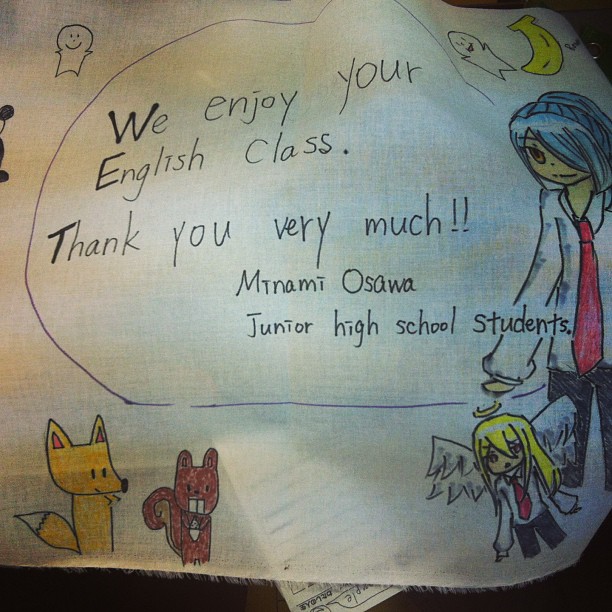 We enjoy your
English Class.
Thank you very much!!
Minami Osawa
Junior high school students.